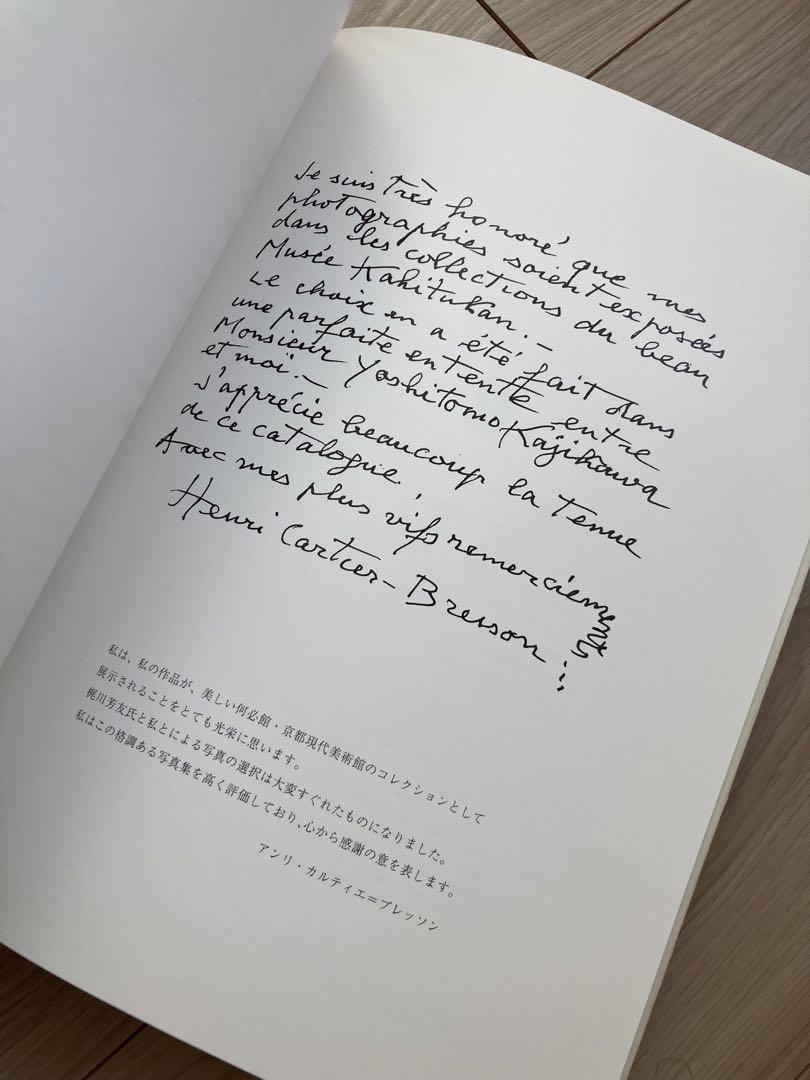 Je suis très honoré que mes
photographies soient exposées
dans les collections du beau
Musée Kahitukan. –
Le choix en a été fait dans
une parfaite entente entre
Monsieur Yoshitomo Kajikawa
et moi. –
J'apprécie beaucoup la tenue
de ce catalogue !
Avec mes plus vifs remerciements
Henri Cartier-Bresson
私は、私の作品が、美しい何必館・京都現代美術館のコレクションとして
展示されることをとても光栄に思います。
梶川芳友氏と私とによる写真の選択は大変すぐれたものになりました。
私はこの格調ある写真集を高く評価しており、心から感謝の意を表します。
アンリ・カルティエ＝ブレッソン